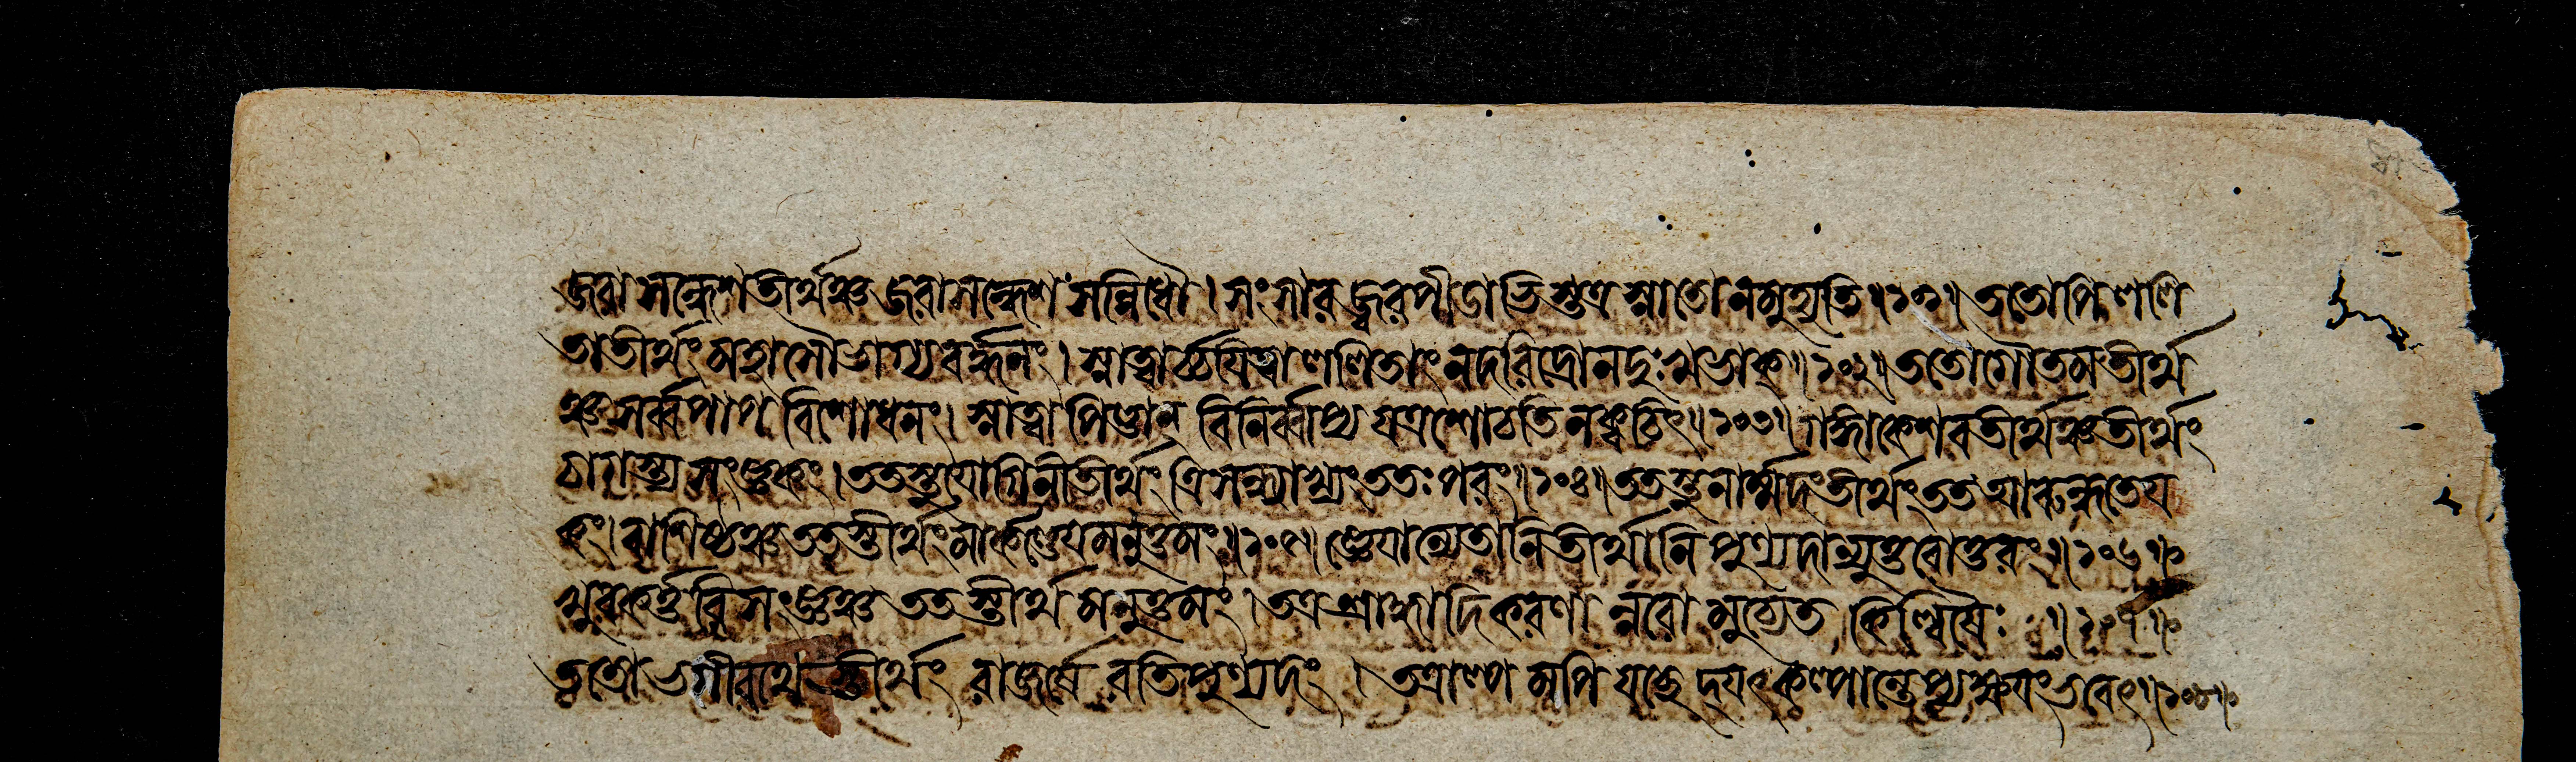 জরাসন্ধেশতীর্থঞ্চ জরাসন্ধেশ সন্নিধৌ । সংসারজ্বরপীডাভিস্তত্র স্নাতো ন মুহ্যতি ॥ ১০১ ॥ ততোপি শণি
তাতীর্থং মহাসৌভাগ্যবর্দ্ধনং । স্নাত্বার্চ্চয়িত্বা শণিতাং ন দরিদ্রো ন দুঃখভাক্ ॥ ১০২ ॥ ততো গৌতমতীর্থ
ঞ্চ সর্ব্বপাপবিশোধনং । স্নাত্বা পিণ্ডান্ বিনির্ব্বাপ্য যত্র শোচতি ন ক্বচিৎ ॥ ১০৩ ॥ গঙ্গাকেশবতীর্থঞ্চ তীর্থং
চাগস্ত্যসংজ্ঞকং । ততস্তু যোগিনীতীর্থং ত্রিসন্ধ্যাখ্যং ততঃ পরং ॥ ১০৪ ॥ ততস্তু নার্ম্মদং তীর্থং তত আরুন্ধতেয়
কং । বাশিষ্ঠঞ্চ ততস্তীর্থং মার্কণ্ডেয়মনুত্তমং ॥ ১০৫ ॥ জ্ঞেয়ান্যেতানি তীর্থানি পুণ্যদান্যুত্তরোত্তরং ॥ ১০৬ ॥
খুরকর্ত্তরিসংজ্ঞঞ্চ ততস্তীর্থমনুত্তমং । তত্র শ্রাদ্ধাদিকরণান্নরো মুচ্যেত কিল্বিষৈঃ ॥ ১০৭ ॥
ততো ভগীরথস্তীর্থং রাজর্ষেরতিপুণ্যদং । তত্রাল্পমপি যচ্ছেদ্ যৎ কল্পান্তেপ্যক্ষয়ং ভবেৎ ॥ ১০৮ ॥